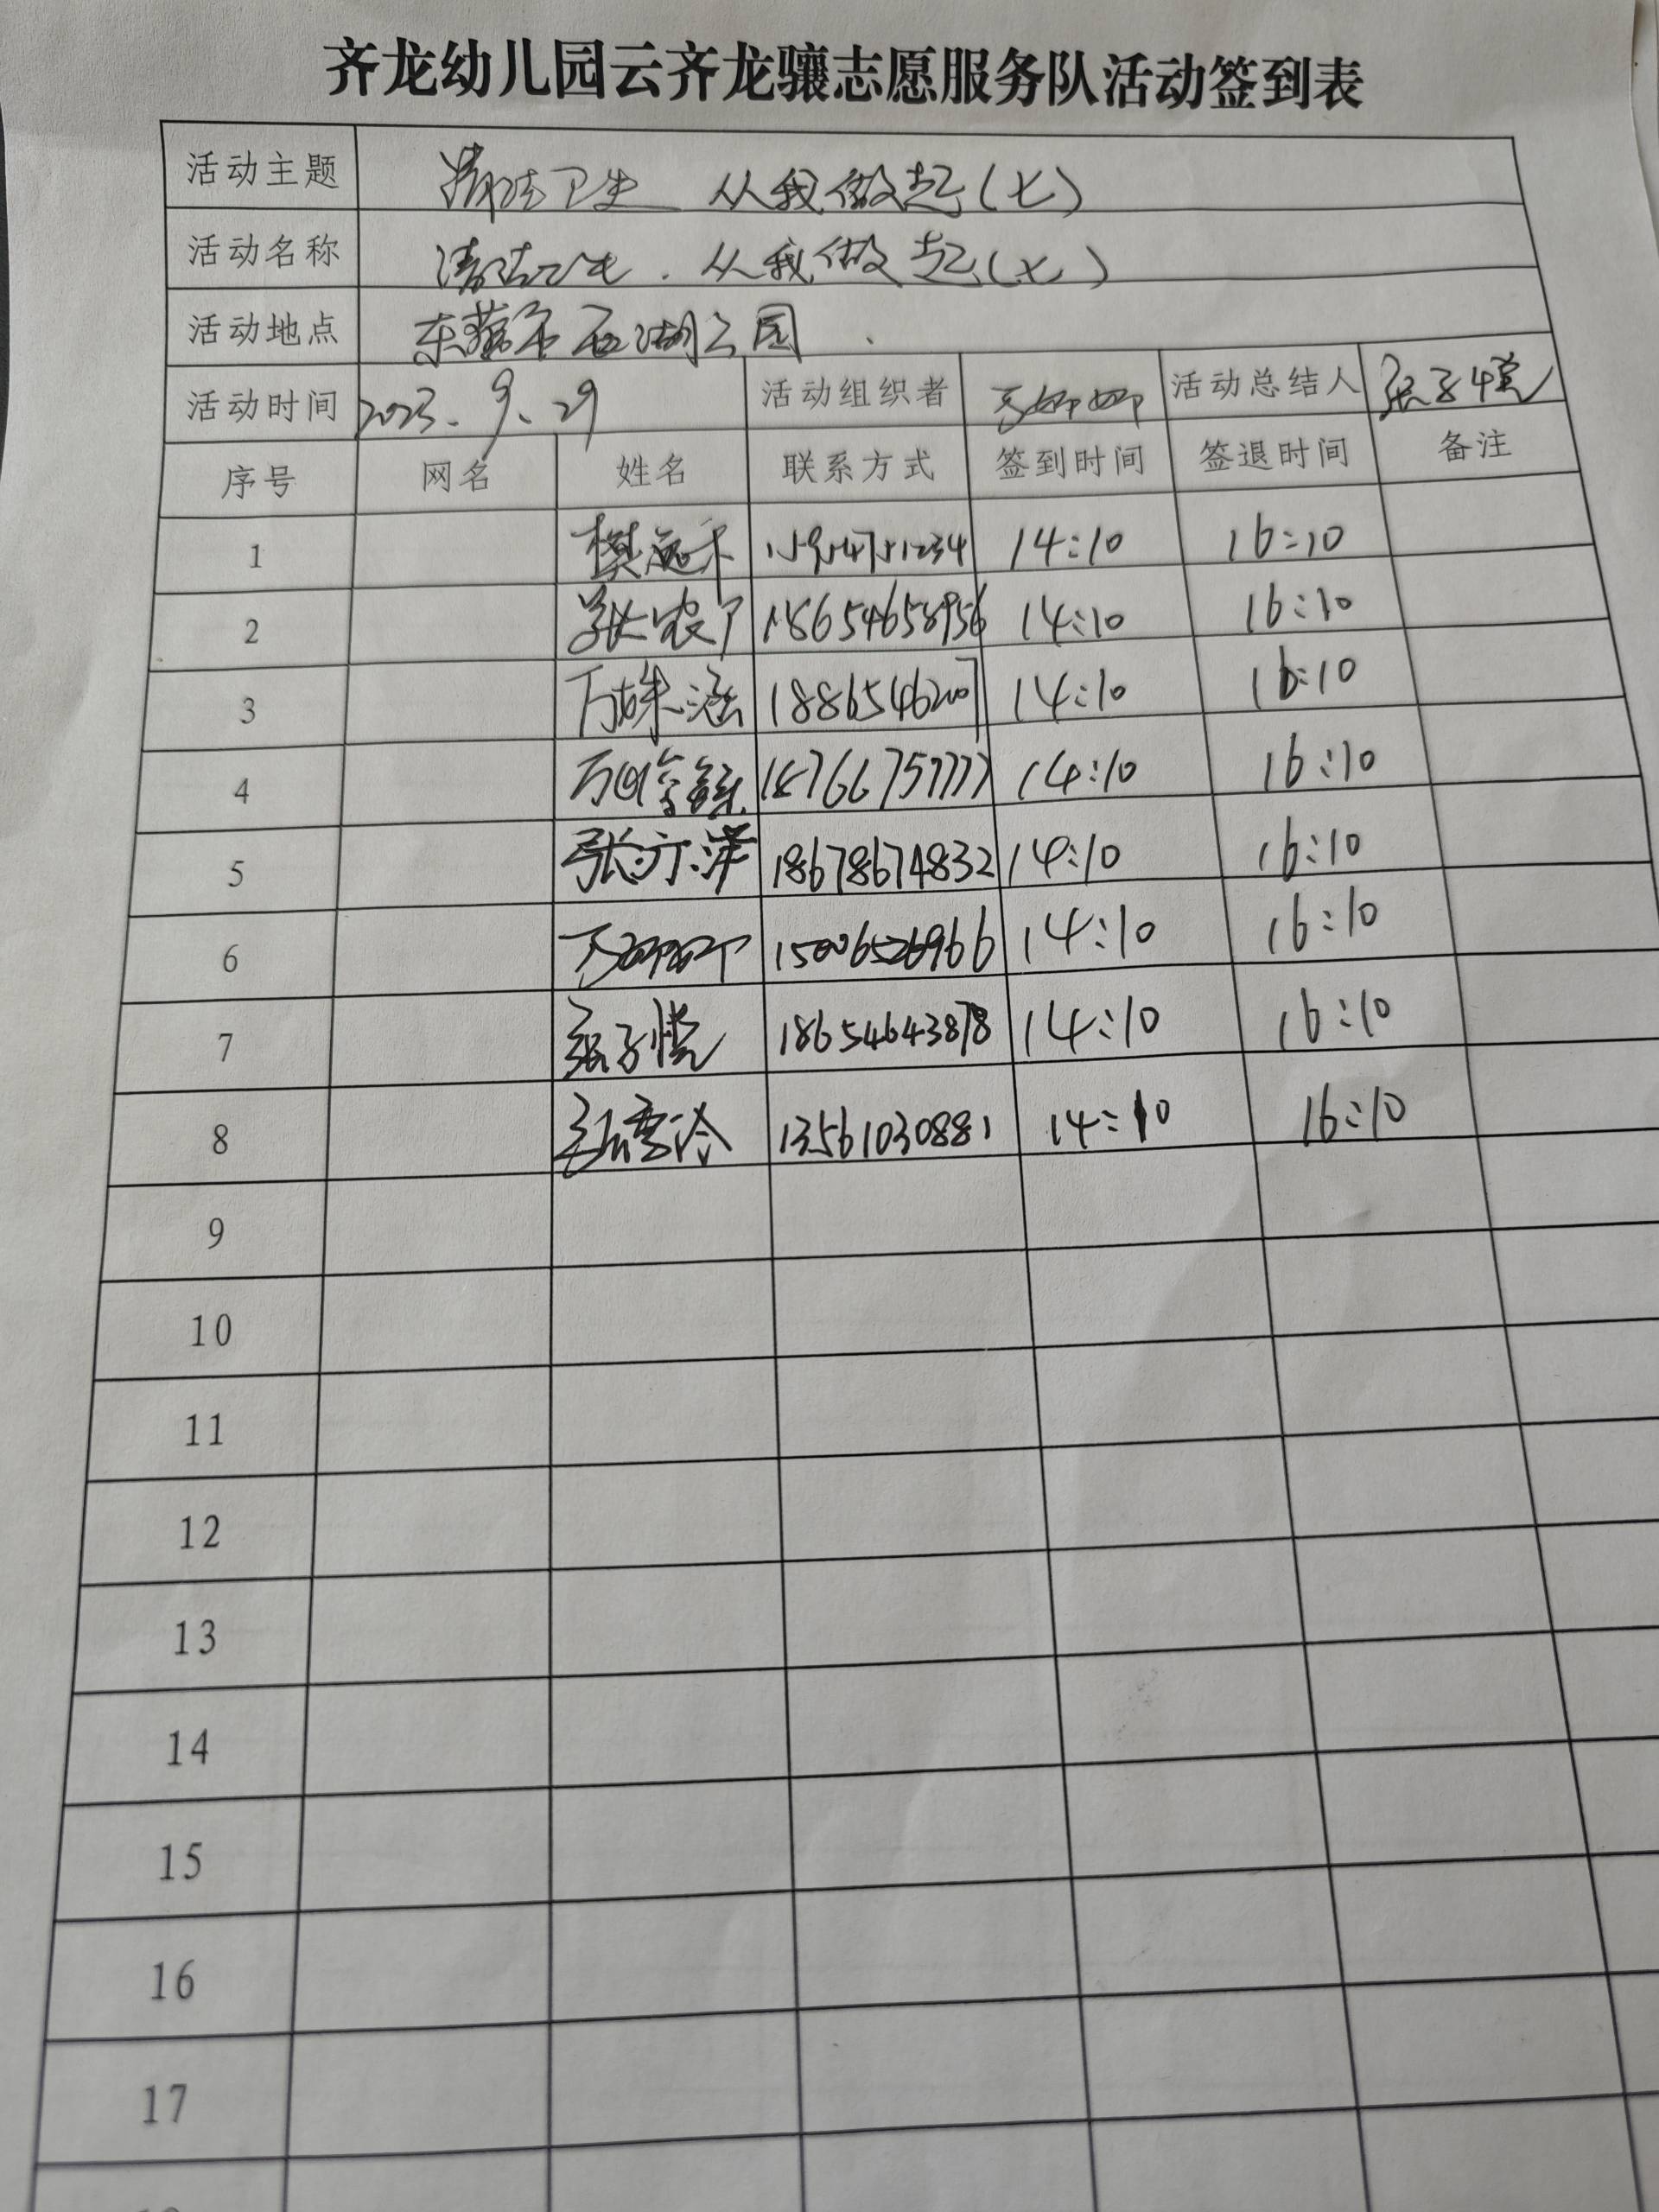 齐龙幼儿园云齐龙骧志愿服务队活动签到表
活动主题 清洁卫生 从我做起(七)
活动名称 清洁卫生.从我做起(七)
活动地点 东营市西湖公园
活动时间 2023.9.29 活动组织者 万娜娜 活动总结人 张子悦
序号 网名 姓名 联系方式 签到时间 签退时间 备注
1 14:10 16:10
2 18654658956 14:10 16:10
3 万姝涵 18865462007 14:10 16:10
4 14:10 16:10
5 18678674832 14:10 16:10
6 万娜娜 15006526966 14:10 16:10
7 张子悦 18654643878 14:10 16:10
8 13561030881 14:10 16:10
9
10
11
12
13
14
15
16
17